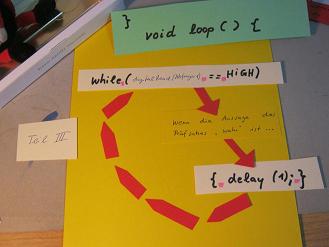 }
void loop() {
while(digitalRead(Abfrage1)==HIGH)
Wenn die Aussage des
Prüfsatzes "wahr" ist...
Teil III
{ delay (1); }